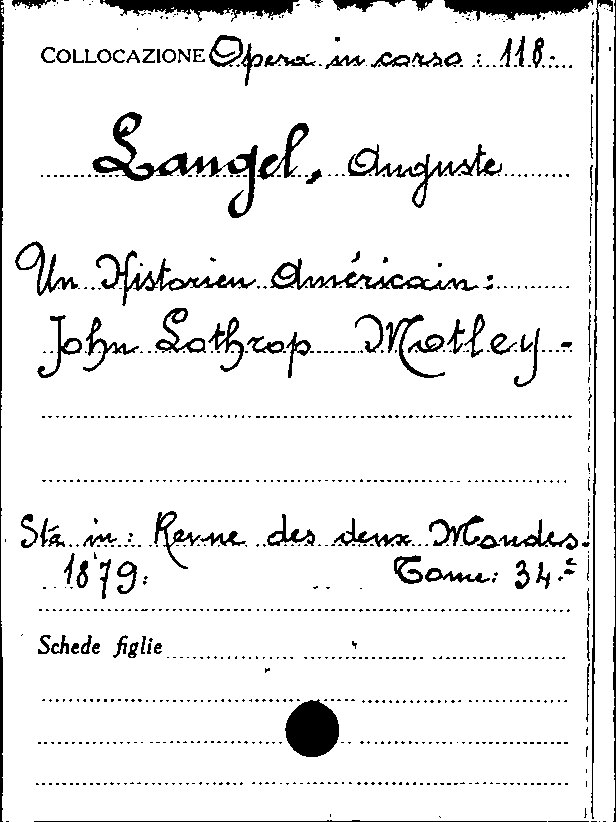 COLLOCAZIONE Opera in corso: 118.
Langel, Auguste
Un Historien Américain:
John Lothrop Motley -
Sta in: Revue des deux Mondes.
1879. Tome: 34.e
Schede figlie